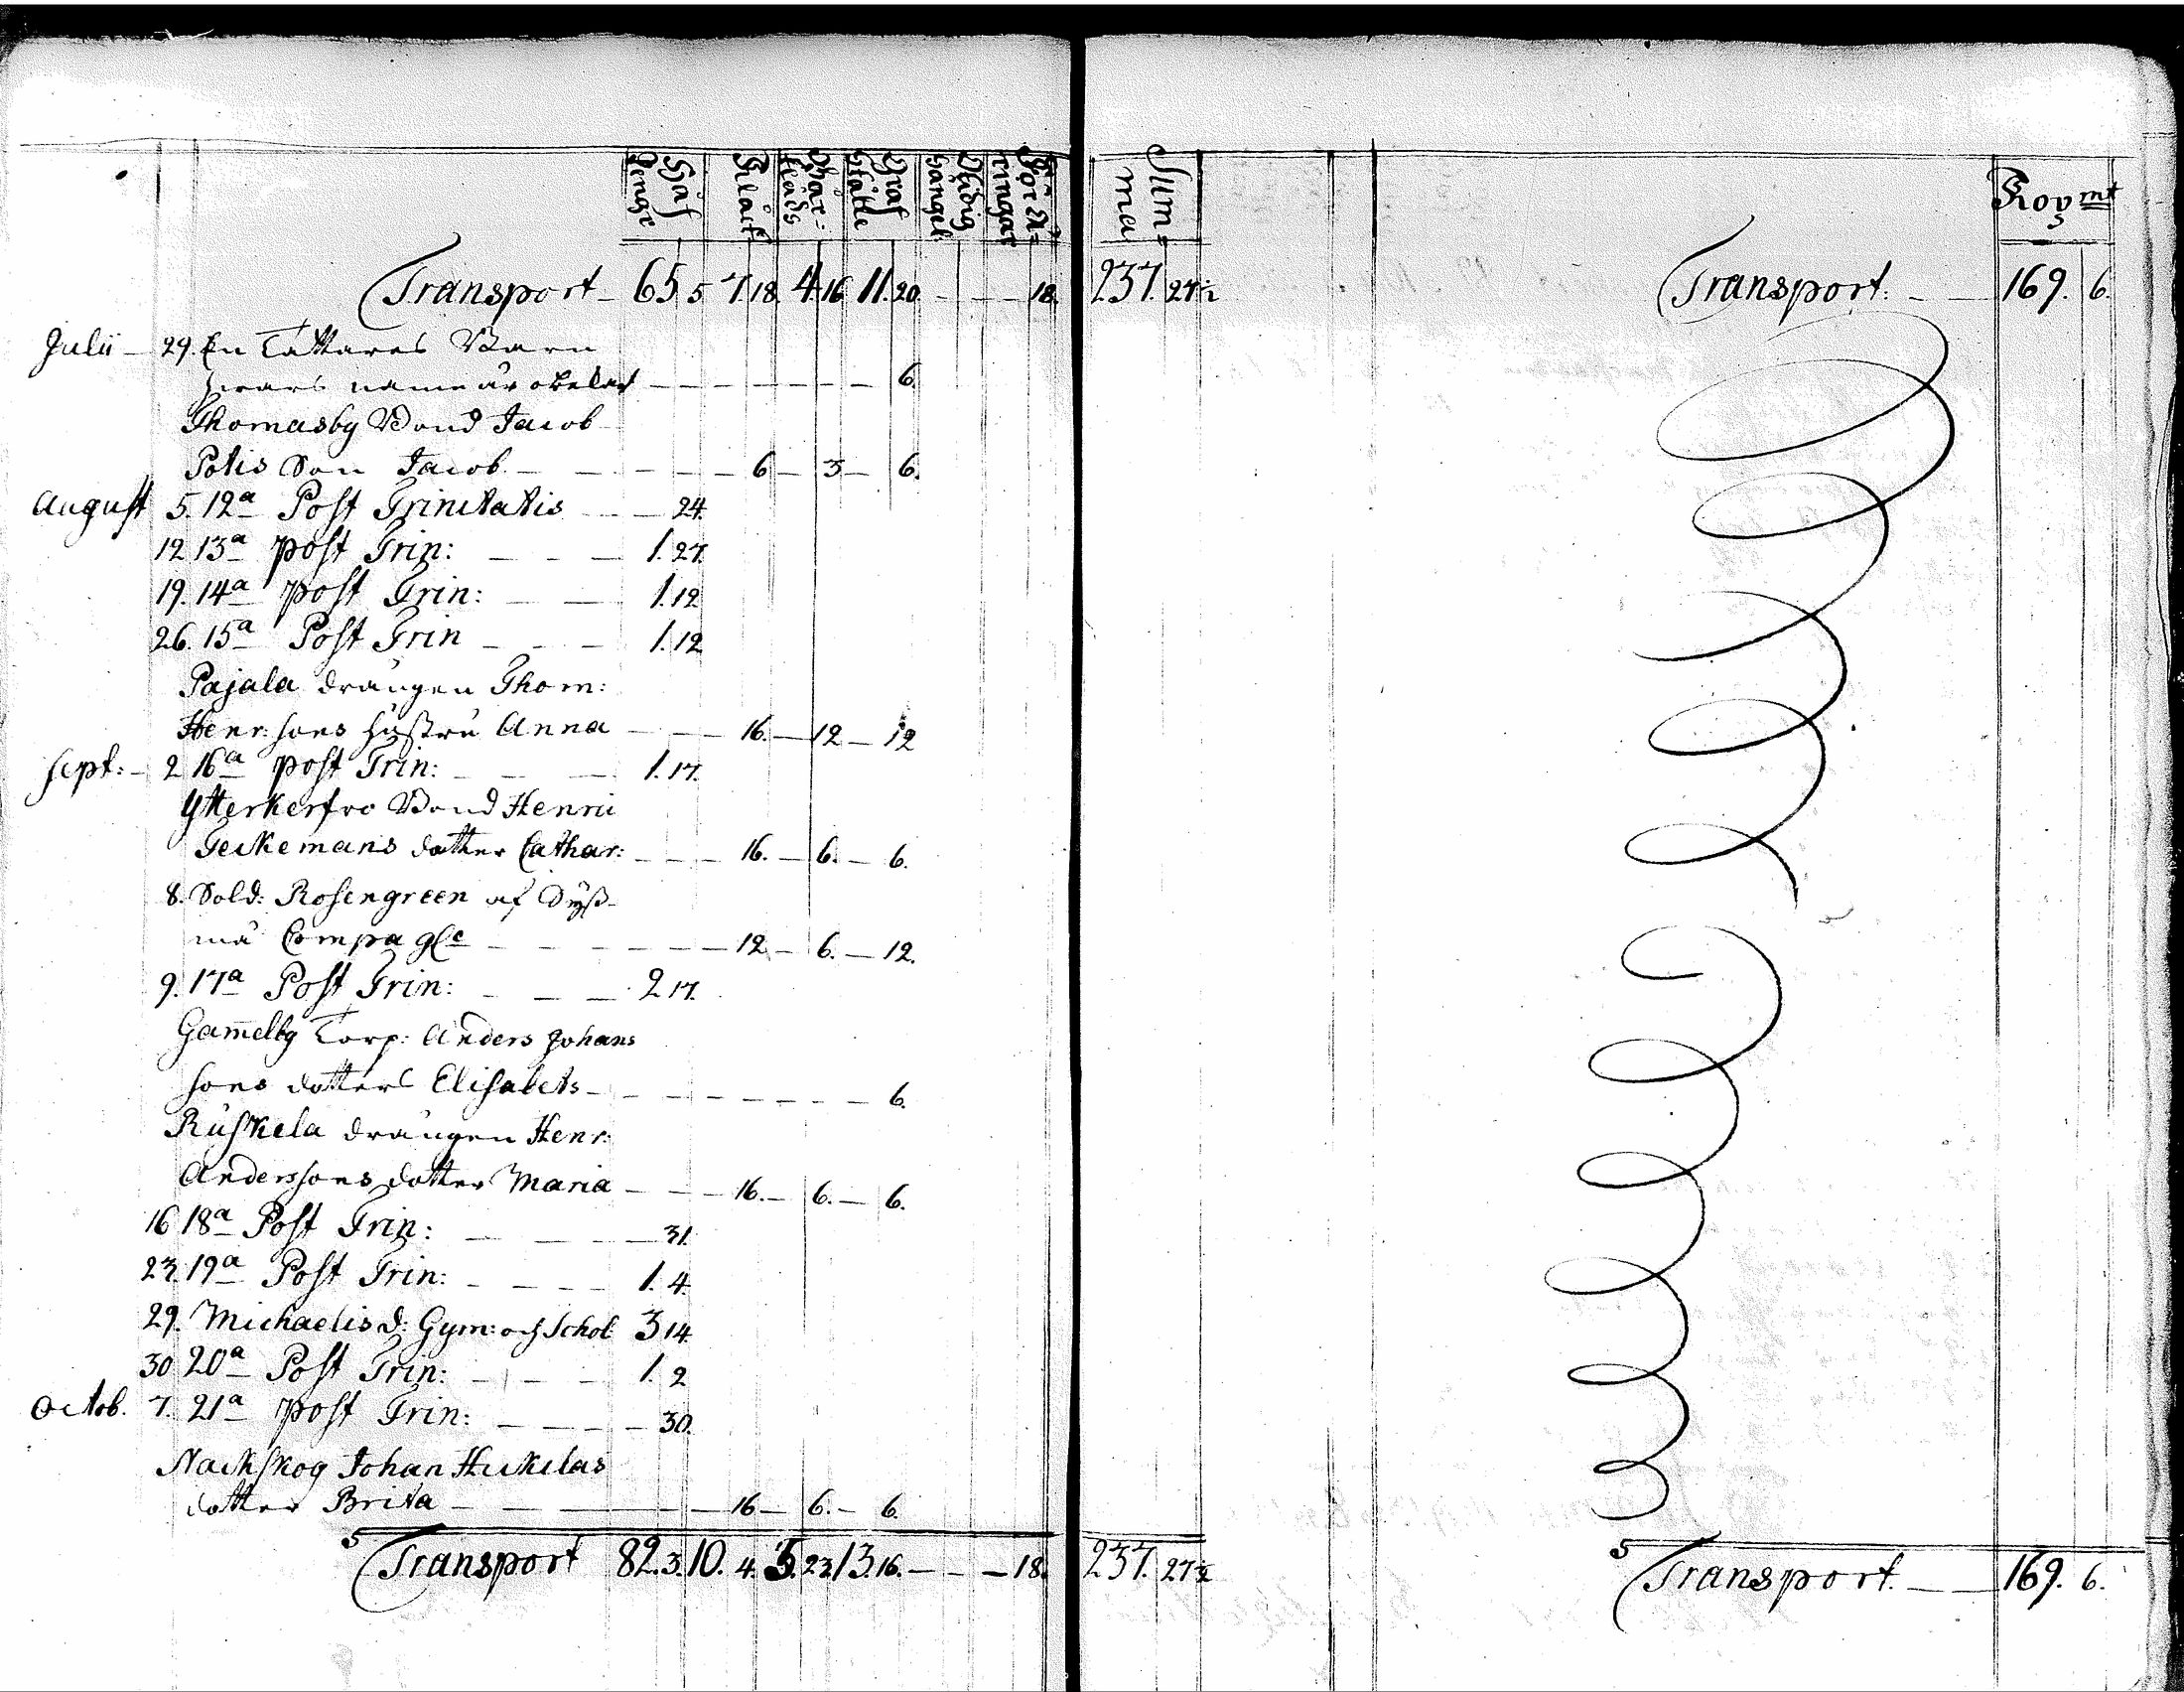 Håf Penge
Klåck
Bår: kläds
Graf ställe
Ringar
Sum= ma
Kop mt
Transport 65 5 7. 18. 4. 16 11. 20. — — — 18. 237. 27½
Transport: — — 169. 6.
Julii — 29. En Tattares Barn
hwars namn är obekant — — — — — — 6.
Thomasby Bond Jacob
Polis Son Jacob — — — — — 6 — 3 — 6.
August 5. 12a Post Trinitatis — — 24.
12 13a Post Trin: — — — 1. 27.
19. 14a Post Trin: — — 1. 12
26. 15a Post Trin — — — 1. 12
Pajala drängen Thom:
Henr: sons hustru Anna — — — 16. — 12 — 12
Sept: — 2 16a Post Trin: — — — 1. 17.
Ytterkerfvo Bond Henric
Teckemans dotter Cathar: — — — 16. — 6. — 6.
8. Sold: Rosengreen af
Compagle — — — — — 12 — 6. — 12.
9. 17a Post Trin: — — — 2 17.
Gam̅elby Torp: Anders Johans
sons dotters Elisabets — — — — — — — 6.
Ruskela drängen Henr:
Anderssons dotter Maria — — — 16. — 6. — 6.
16 18a Post Trin: — — — 31.
23. 19a Post Trin: — — — — 1. 4.
29. Michaelis d: Gym: och Schol 3 14.
30 20a Post Trin: — — — 1. 2
Octob. 7. 21a Post Trin: — — — — 30.
Nackskog Johan Heikilas
dotter Brita — — — — — 16 — 6. — 6.
Transport 82. 3. 10. 4. 5. 23. 13. 16. — — — 18. 237. 27½
Transport. — — 169. 6.